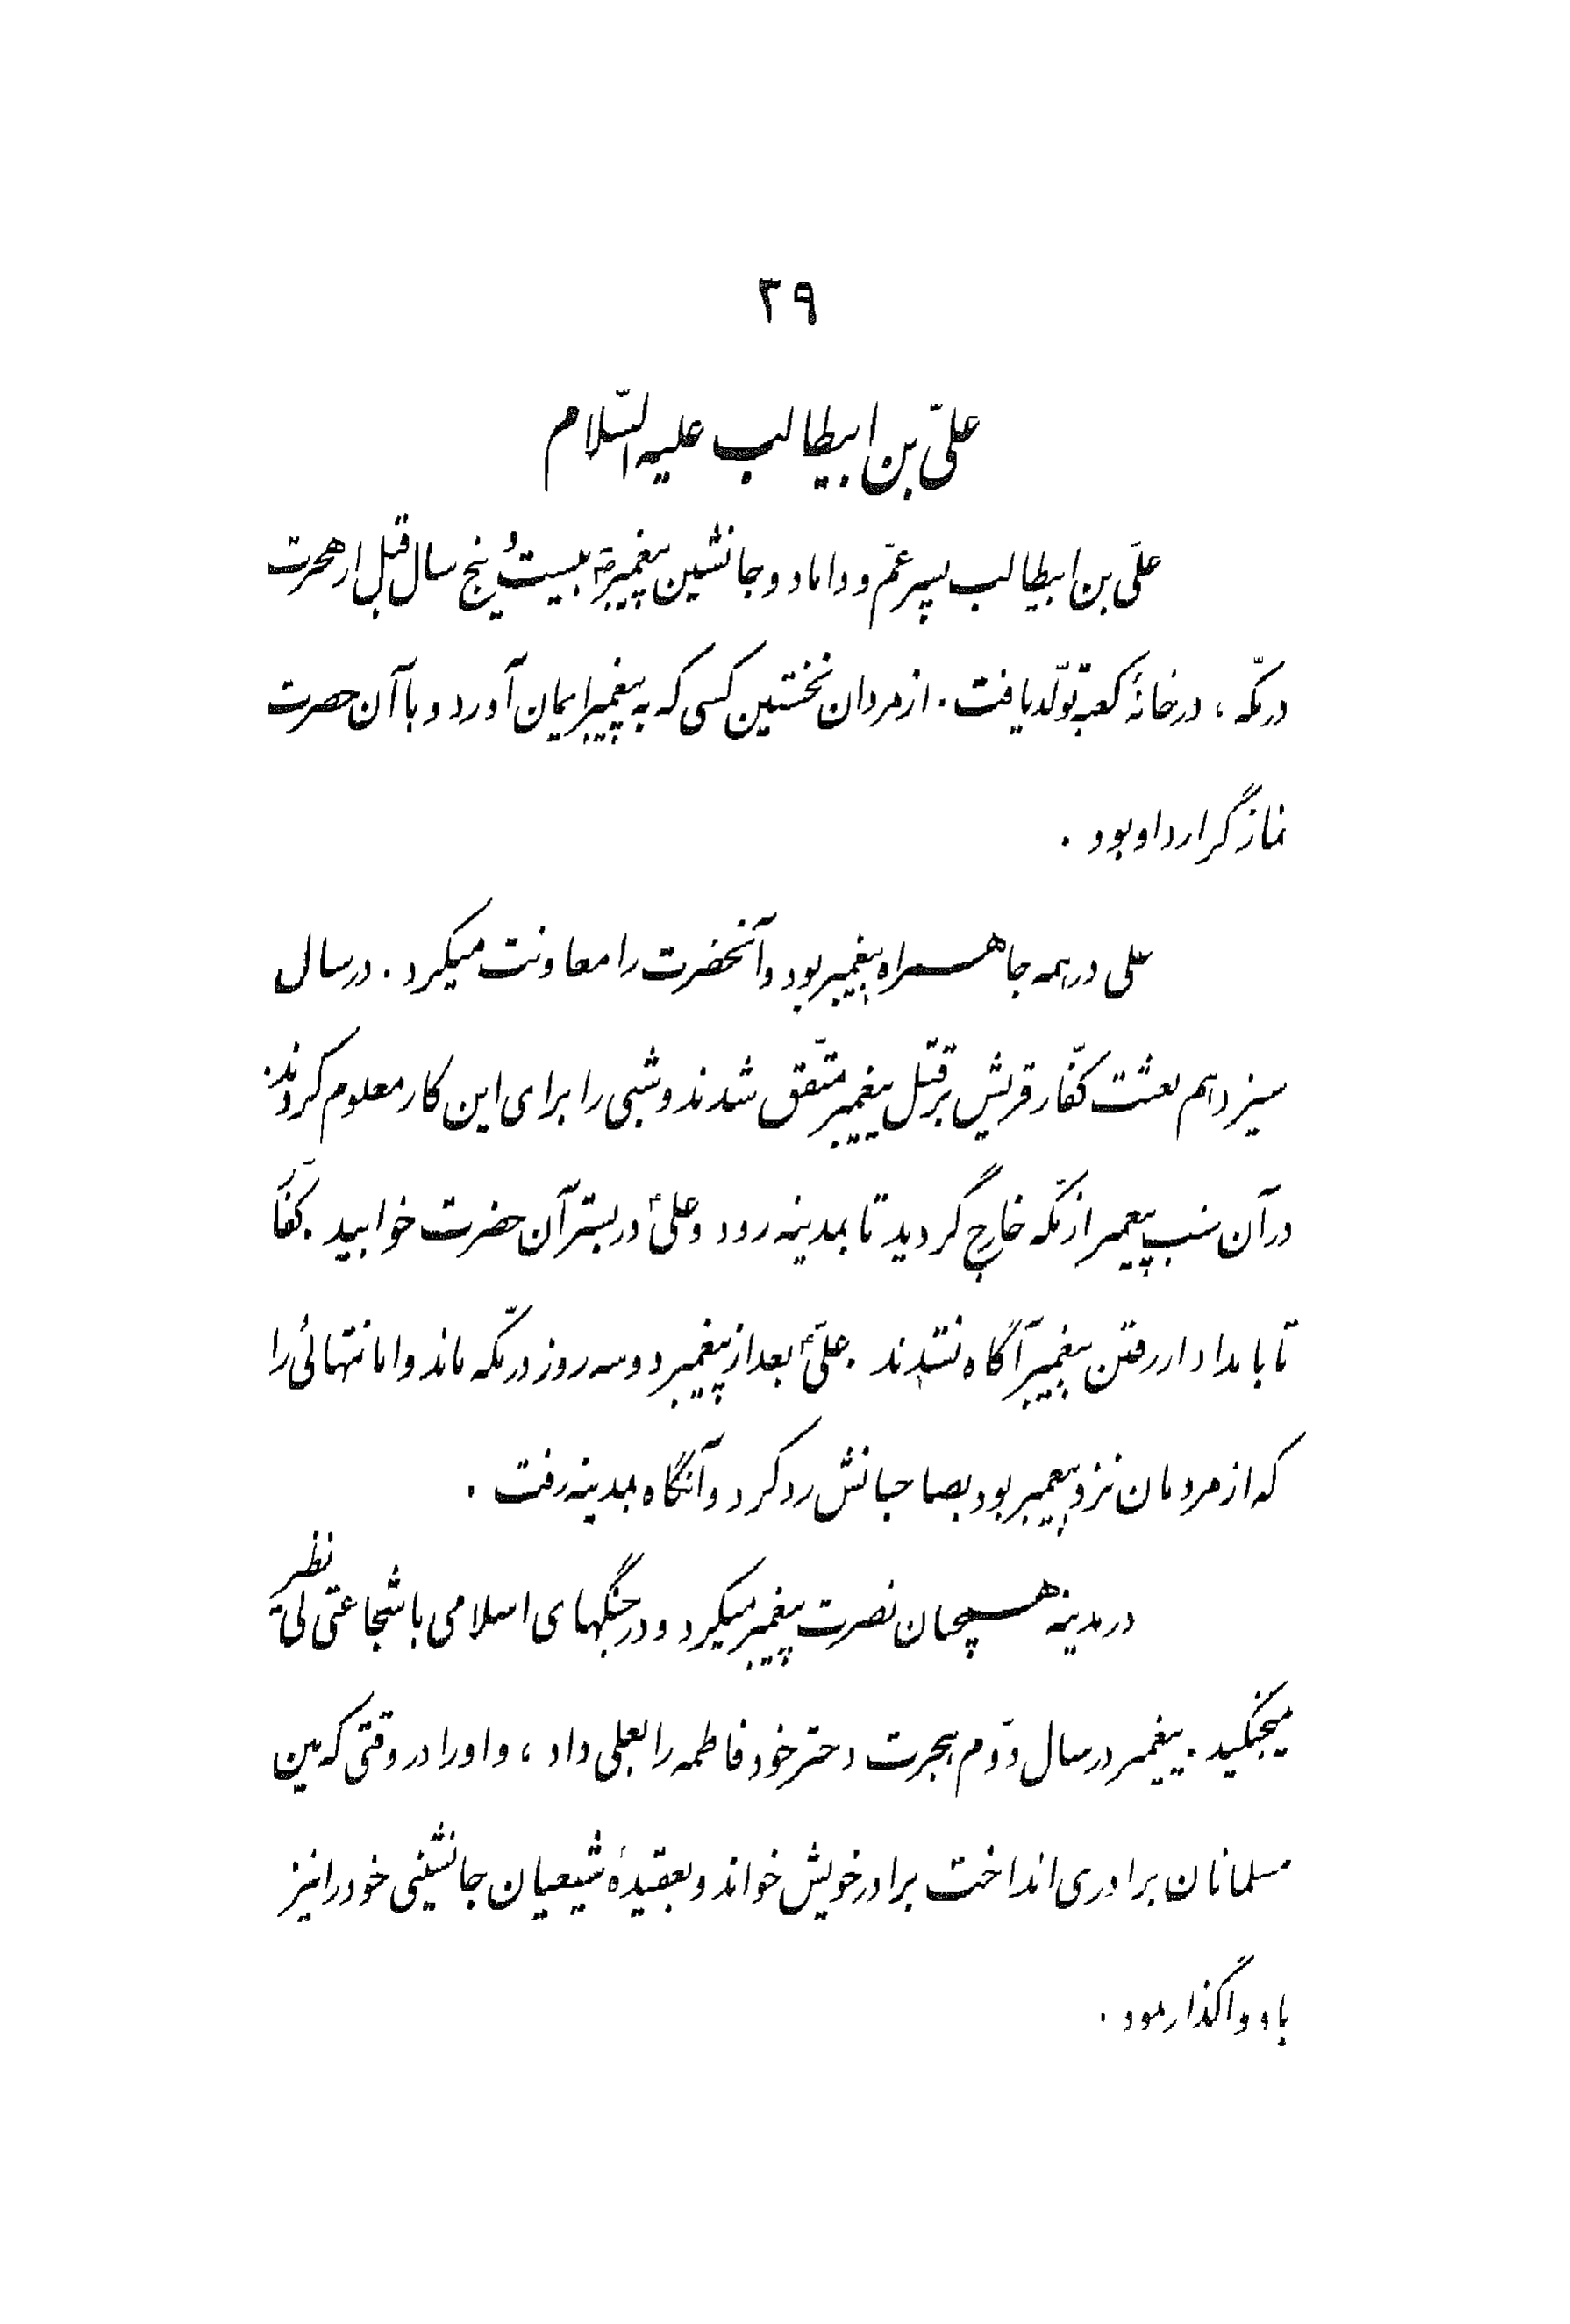 ۲۹
علیّ بن ابیطالب علیه السّلام
علیّ بن ابیطالب پسر عمّ و داماد و جانشین پیغمبر ص بیست و پنج سال قبل از هجرت
در مکّه ، در خانهٔ کعبه تولّد یافت . از مردان نخستین کسی که به پیغمبر ایمان آورد و با آن حضرت
نماز گزارد او بود .
علی در همه جا همراه پیغمبر بود و آنحضرت را معاونت میکرد . در سال
سیزدهم بعثت کفّار قریش بر قتل پیغمبر متّفق شدند و شبی را برای این کار معلوم کردند .
در آن شب پیغمبر از مکّه خارج گردید تا بمدینه رود و علی ع در بستر آن حضرت خوابید . کفّار
تا بامداد از رفتن پیغمبر آگاه نشدند . علی ع بعد از پیغمبر دو سه روز در مکّه ماند و امانتهائی را
که از مردمان نزد پیغمبر بود بصاحبانش رد کرد و آنگاه بمدینه رفت .
در مدینه همچنان نصرت پیغمبر میکرد و در جنگهای اسلامی با شجاعتی بی نظیر
میجنگید . پیغمبر در سال دوّم هجرت دختر خود فاطمه را بعلی داد ، و او را در وقتی که بین
مسلمانان برادری انداخت برادر خویش خواند و بعقیدهٔ شیعیان جانشینی خود را نیز
باو واگذار نمود .